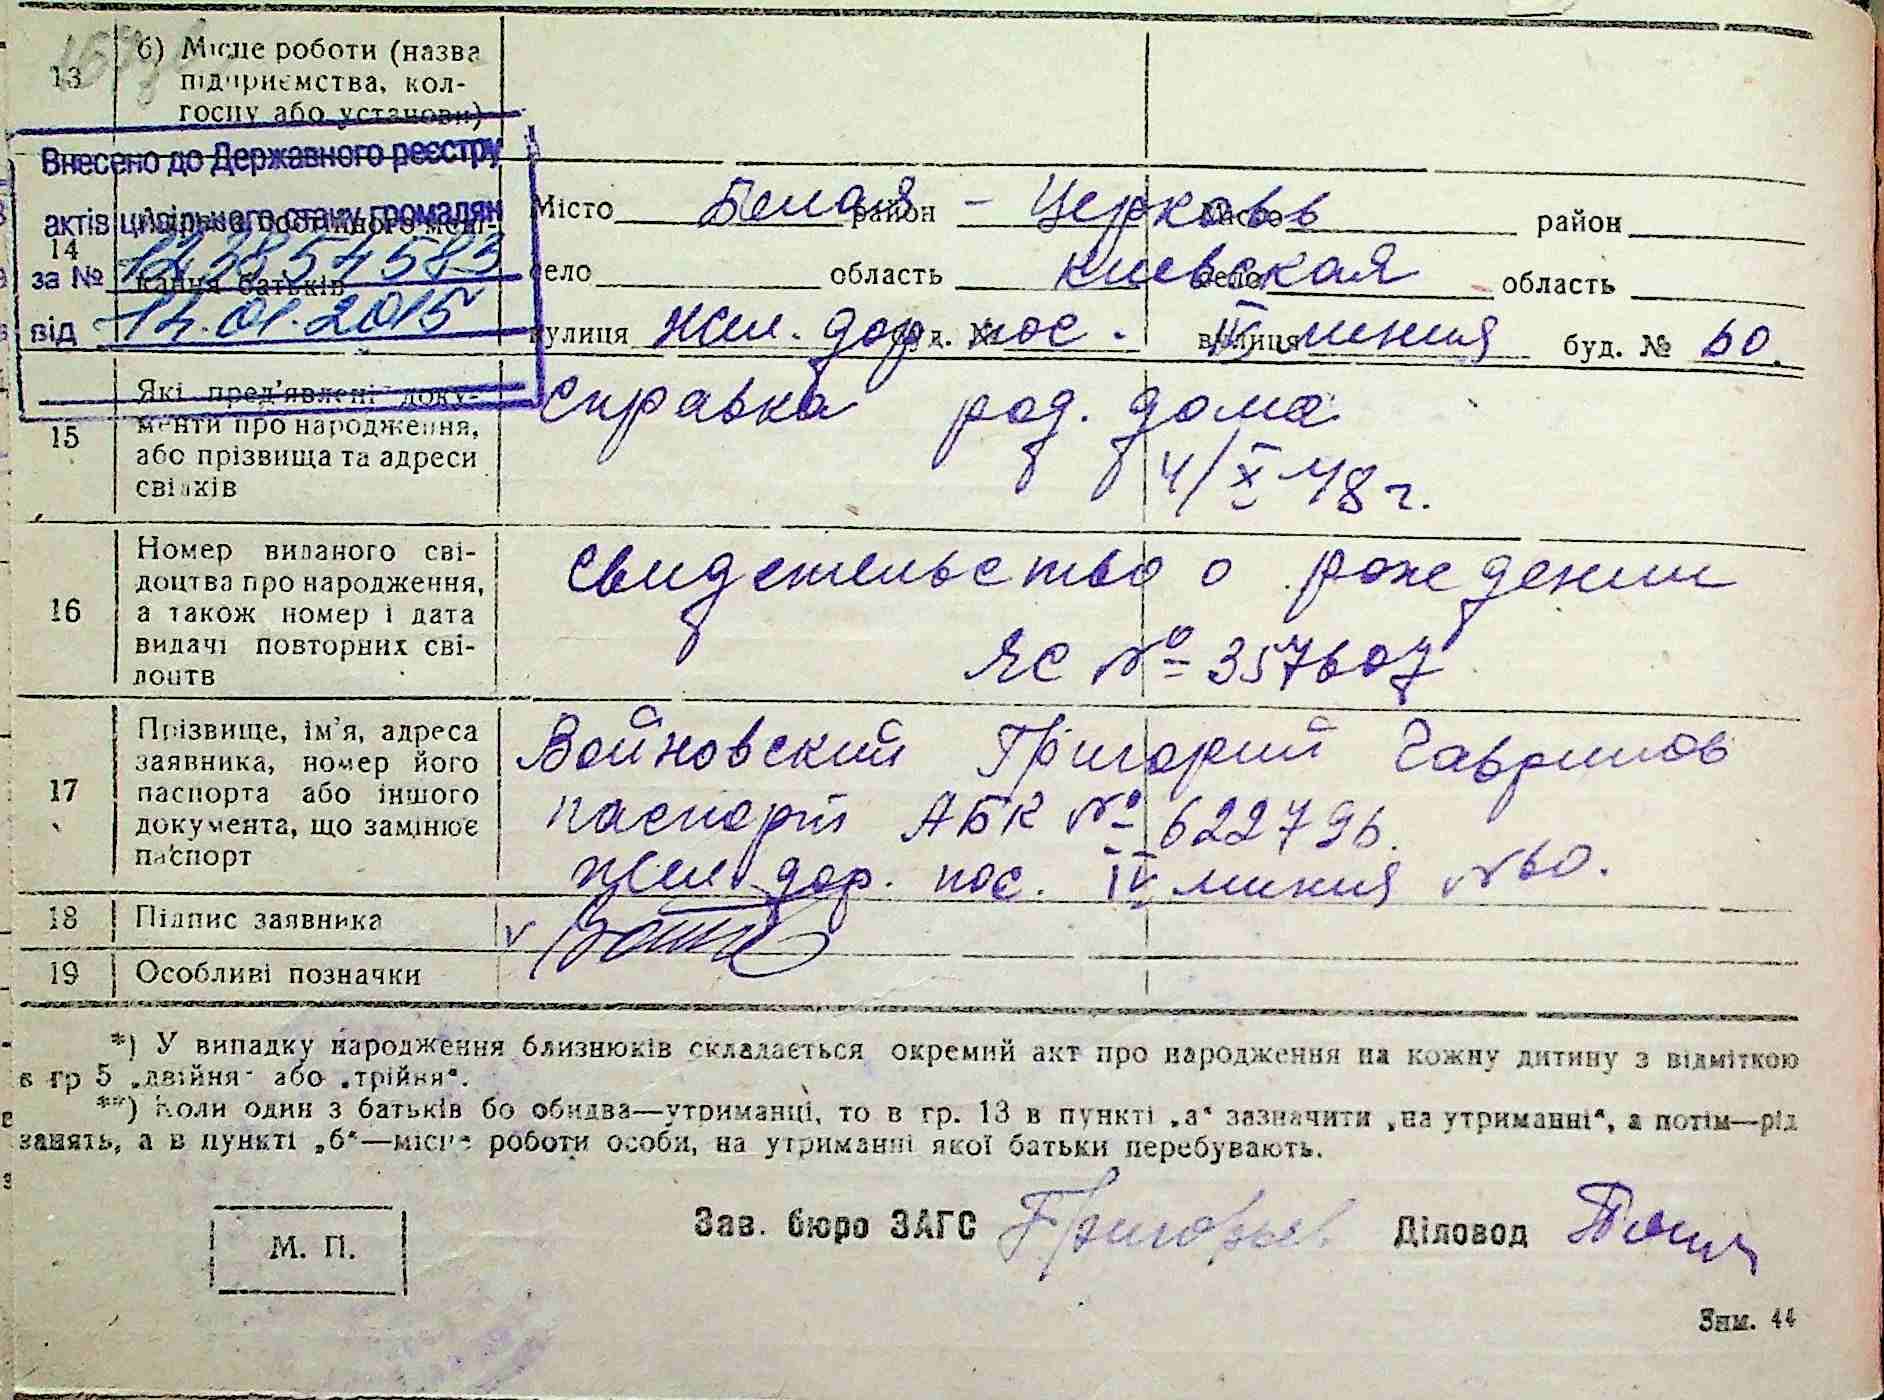 13
б) Місце роботи (назва
підприємства, кол-
госпу або установи)
Внесено до Державного реєстру
актів цивільного стану громадян
за №
від 14.01.2015
14
кання батьків
Місто Белая район – Церковь Місто район
село область Киевская село область
вулиця Жел. дор. буд. № пос. IV вулиця линия буд. № 60.
15
Які пред'явлені доку-
менти про народження,
або прізвища та адреси
свідків
Справка род. дома
4/X 48 г.
16
Номер виданого сві-
доцтва про народження,
а також номер і дата
видачі повторних сві-
доцтв
Свидетельство о рождении
ЯС № 357607
17
Прізвище, ім'я, адреса
заявника, номер його
паспорта або іншого
документа, що замінює
паспорт
Войновский Григорий Гаврилов
паспорт АБК № 622796.
Жел. дор. пос. IV линия № 60.
18 Підпис заявника
19 Особливі позначки
*) У випадку народження близнюків складається окремий акт про народження на кожну дитину з відміткою
в гр 5 „двійня" або „трійня".
**) Коли один з батьків бо обидва—утриманці, то в гр. 13 в пункті „а" зазначити „на утриманні", а потім—рід
занять, а в пункті „б"—місце роботи особи, на утриманні якої батьки перебувають.
М. П.
Зав. бюро ЗАГС Григорьев Діловод
Зим. 44